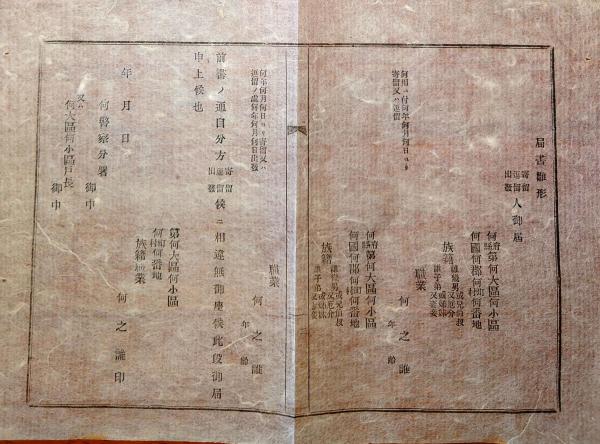 届書雛形
寄留
逗留 人御届
出発
何府縣第何大區何小區
何國何郡何町村何番地
族籍 誰幾男又厄介
職業
何之誰
年齢
何用ニ付何年何月何日ヨリ
寄留又ハ逗留
何府縣第何大區何小區
何國何郡何町村何番地
族籍
誰子弟又妻妾
職業
何之誰
年齢
何年何月何日ヨリ寄留又ハ
逗留ノ處何年何月何日出發
前書ノ通自分方 寄留 逗留 出發 候ニ相違無御座候此段御届
申上候也
第何大區何小區
何町村何番地
族籍職業
何之誰印
年月日
何警察分署
御中
又ハ
何大區何小區戸長
御中